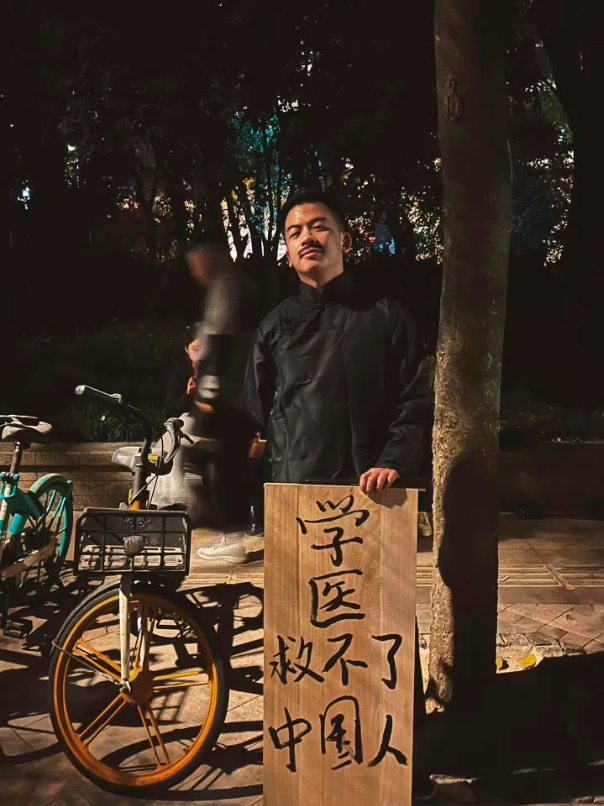 学
医
救不了
中国人